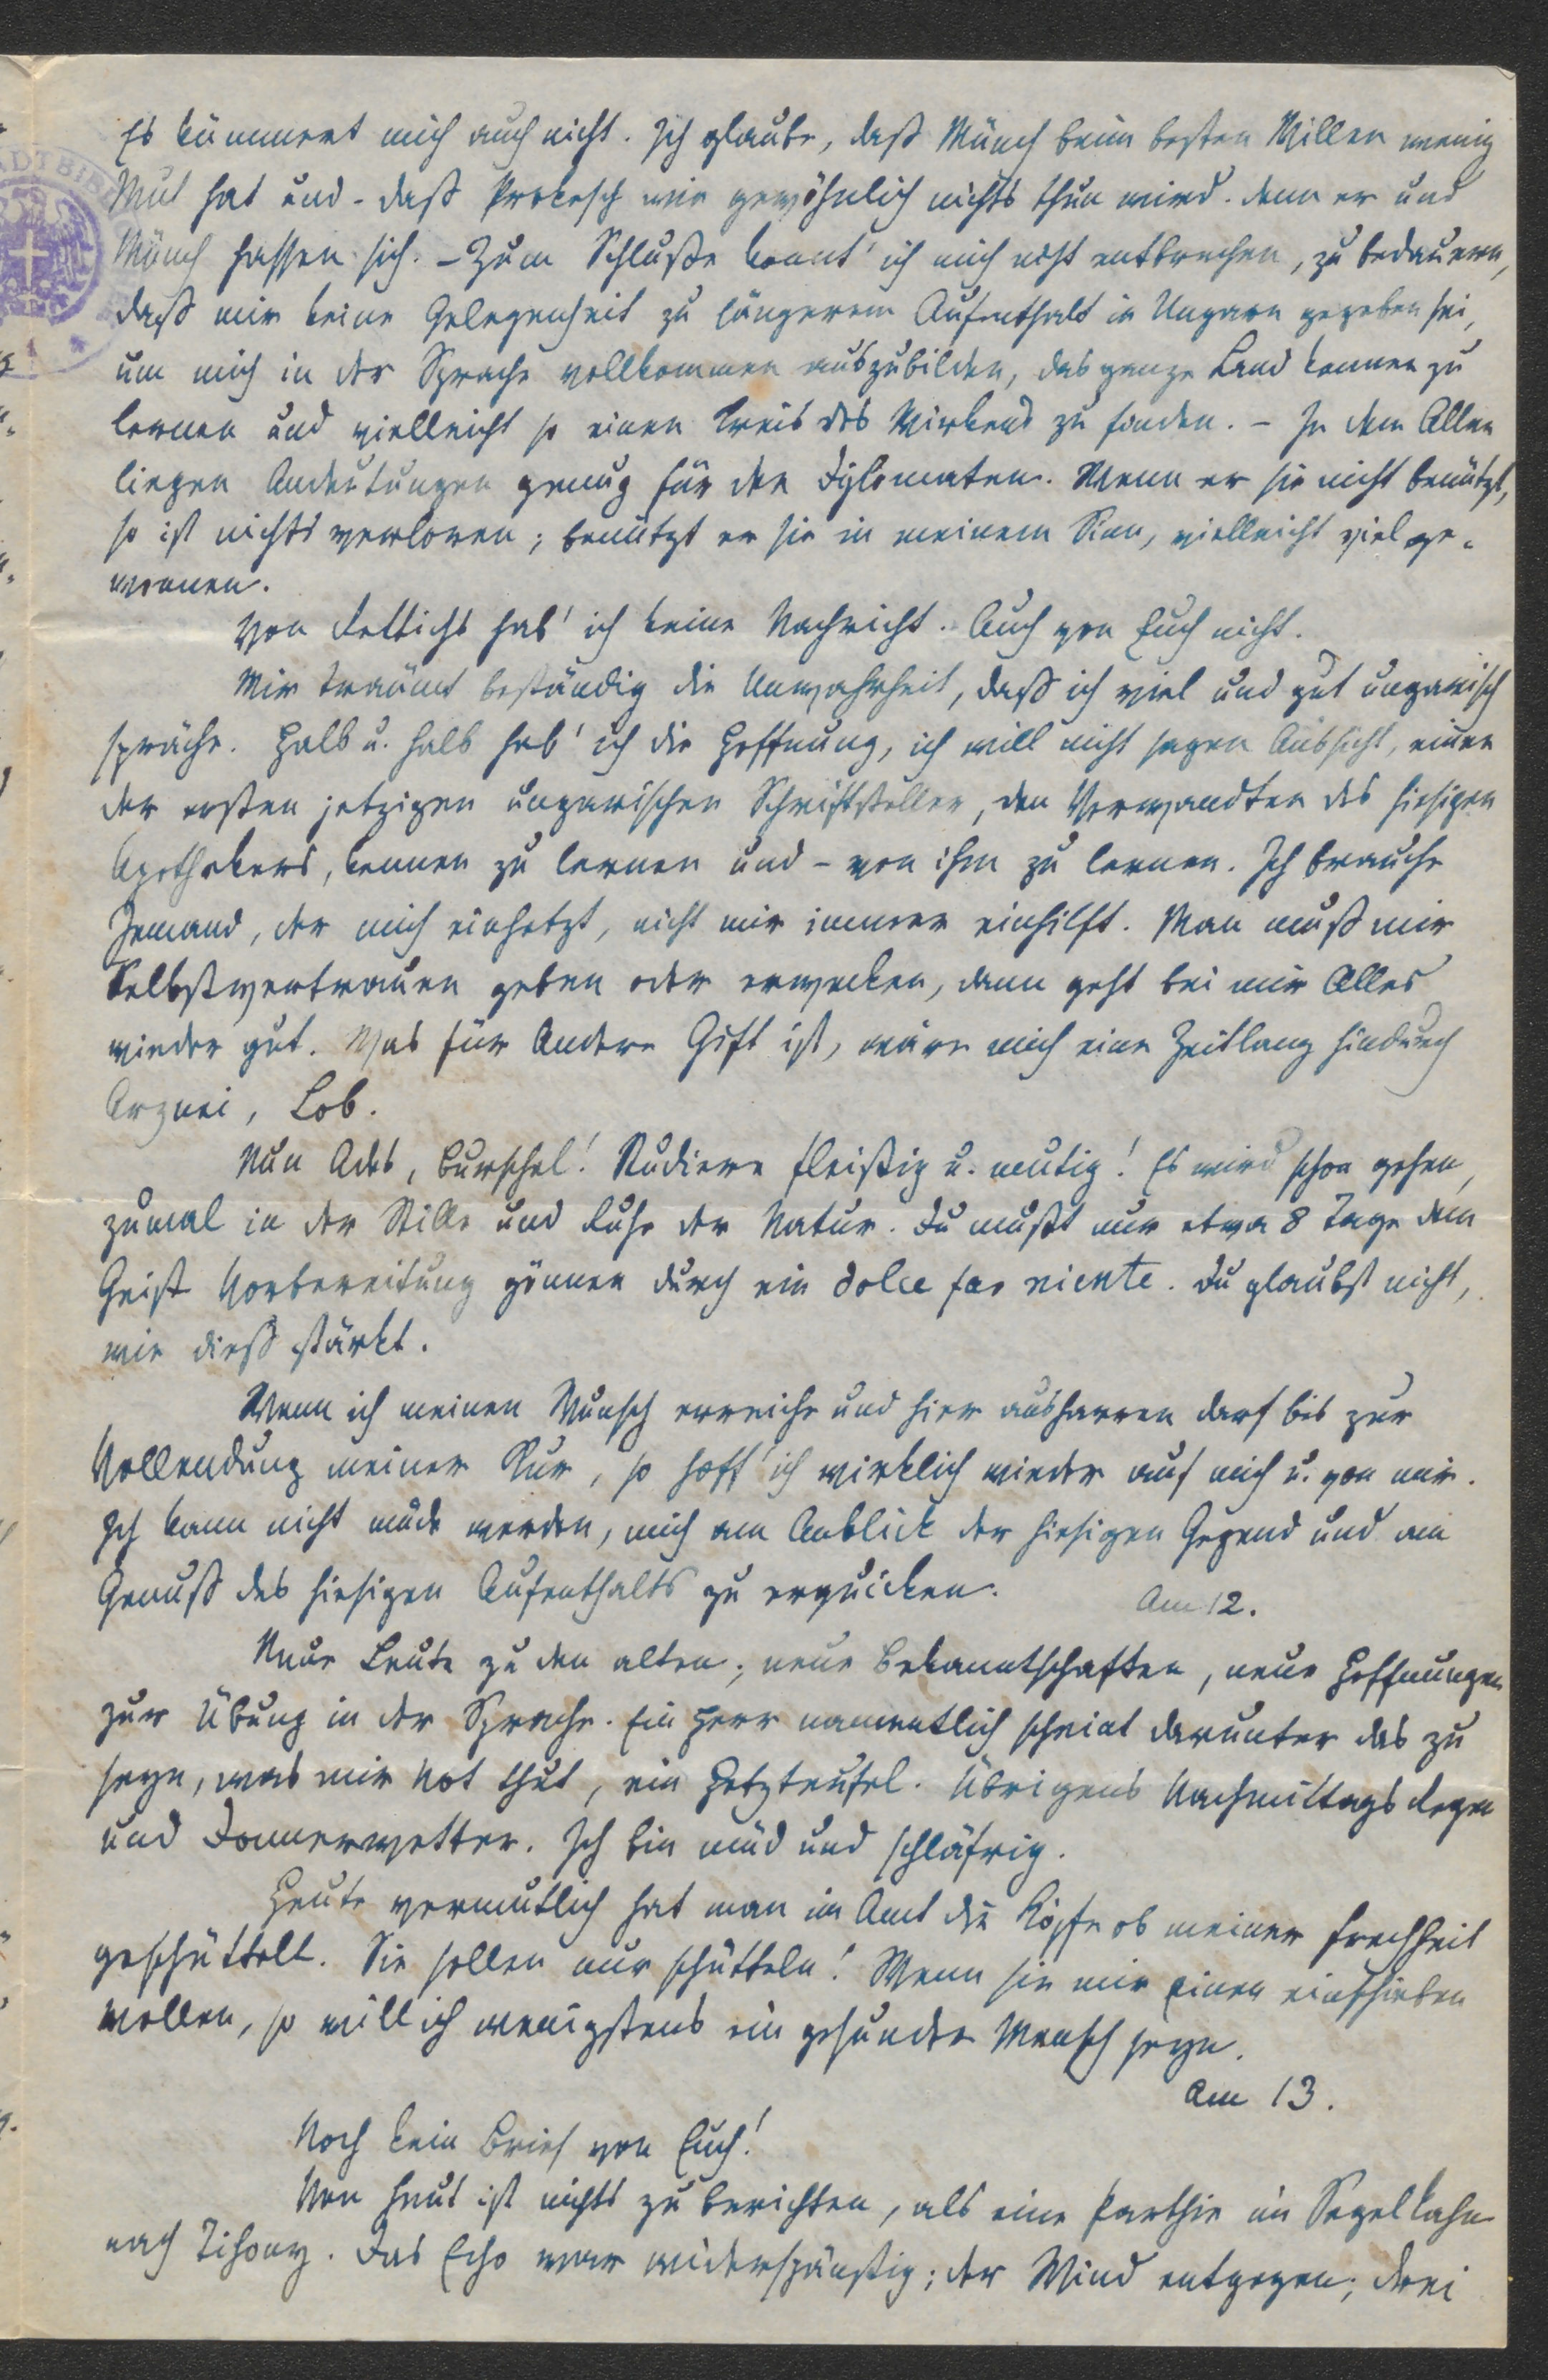 Es kümmert mich auch nicht. Ich glaube, daß Münch beim besten Willen wenig
Mut hat und - daß Prokesch wie gewöhnlich nichts thun wird. denn er und
Münch hassen sich. - Zum Schluße konnt' ich mich nicht entbrechen, zu bedauern,
daß mir keine Gelegenheit zu längerem Aufenthalt in Ungarn gegeben sei,
um mich in der Sprache vollkommen auszubilden, das ganze Land kennen zu
lernen und vielleicht so einen Kreis des Wirkens zu finden. - In dem Allen
liegen Andeutungen genug für den Diplomaten. Wenn er sie nicht benützt,
so ist nichts verloren; benützt er sie in meinem Sinn, vielleicht viel ge-
wonnen.
Von Rettichs hab' ich keine Nachricht. Auch von Euch nicht.
Mir träumt beständig die Unwahrheit, daß ich viel und gut ungarisch
spräche. Halb u. halb hab' ich die Hoffnung, ich will nicht sagen Aussicht, einen
der ersten jetzigen ungarischen Schriftsteller, den Verwandten des hiesigen
Apothekers, kennen zu lernen und - von ihm zu lernen. Ich brauche
Jemand, der mich einhetzt, nicht mir immer einhilft. Man muß mir
Selbstvertrauen geben oder erwecken, dann geht bei mir Alles
wieder gut. Was für Andere Gift ist, wäre mich eine Zeitlang hindurch
Arznei, Lob.
Nun Ade, Burschel! Studiere fleißig u. mutig! Es wird schon gehen,
zumal in der Stille und Ruhe der Natur. Du mußt nur etwa 8 Tage dem
Geist Vorbereitung gönnen durch ein dolce far niente. Du glaubst nicht,
wie dieß stärkt.
Wenn ich meinen Wunsch erreiche und hier ausharren darf bis zur
Vollendung meiner Kur, so hoff' ich wirklich wieder auf mich u. von mir.
Ich kann nicht müde werden, mich am Anblick der hiesigen Gegend und am
Genuß des hiesigen Aufenthalts zu erquicken.
Am 12.
Neue Leute zu den alten; neue Bekanntschaften, neue Hoffnungen
zur Übung in der Sprache. Ein Herr namentlich scheint darunter das zu
seyn, was mir Not thut, ein Hetzteufel. Übrigens Nachmittags Regen
und Donnerwetter. Ich bin müd und schläfrig.
Heute vermutlich hat man im Amt die Köpfe ob meiner Frechheit
geschüttelt. Sie sollen nur schütteln! Wenn sie mir Einen einschieben
wollen, so will ich wenigstens ein gesunder Mensch seyn.
Am 13.
Noch kein Brief von Euch!
Von heut ist nichts zu berichten, als eine Parthie im Segelkahn
nach Tihony. Das Echo war widerspänstig; der Wind entgegen; drei